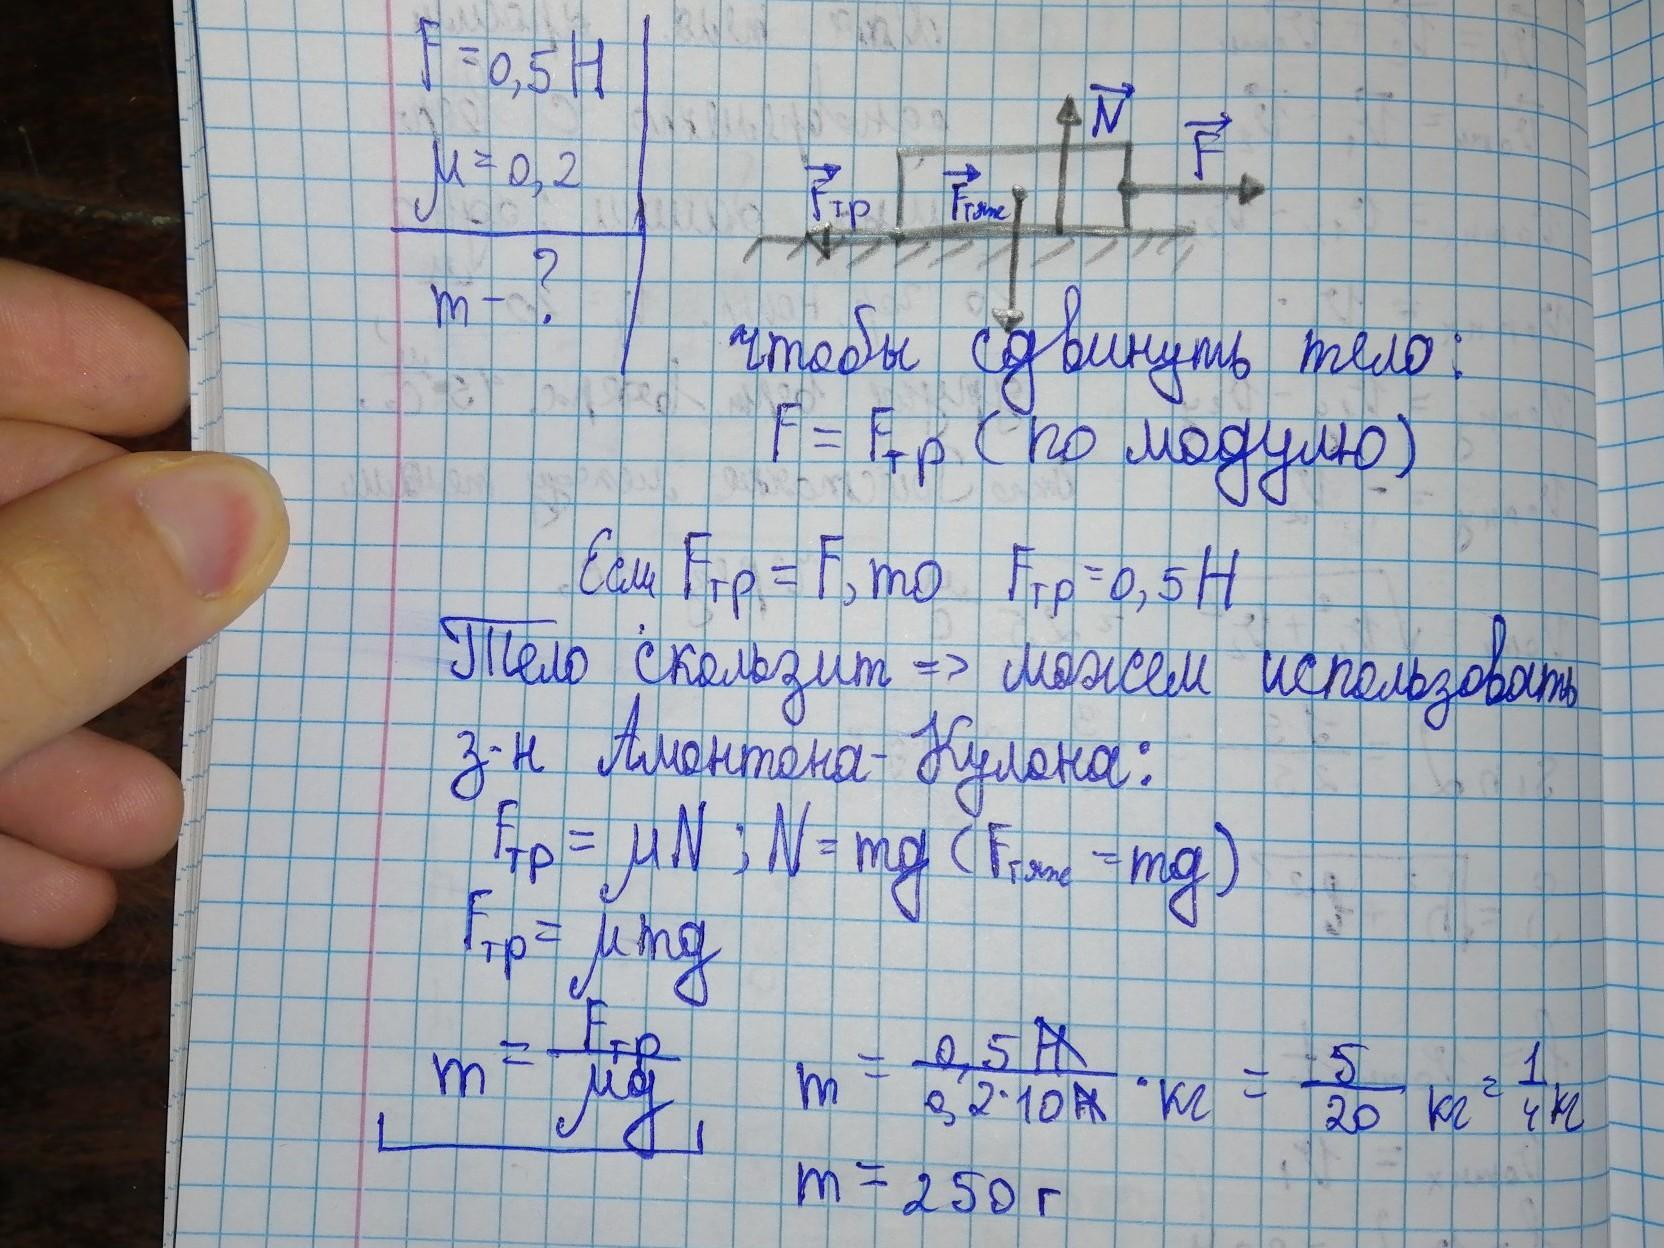 F = 0,5 Н
μ = 0,2
m - ?
N
F
Fтр
Fтяж
чтобы сдвинуть тело:
F = Fтр (по модулю)
Если Fтр = F, то Fтр = 0,5 Н
Тело скользит => можем использовать
з-н Амонтона-Кулона:
Fтр = μN ; N = mg (Fтяж = mg)
Fтр = μmg
m = Fтр / μg
m = 0,5 Н / 0,2·10 Н · кг = 5/20 кг = 1/4 кг
m = 250 г